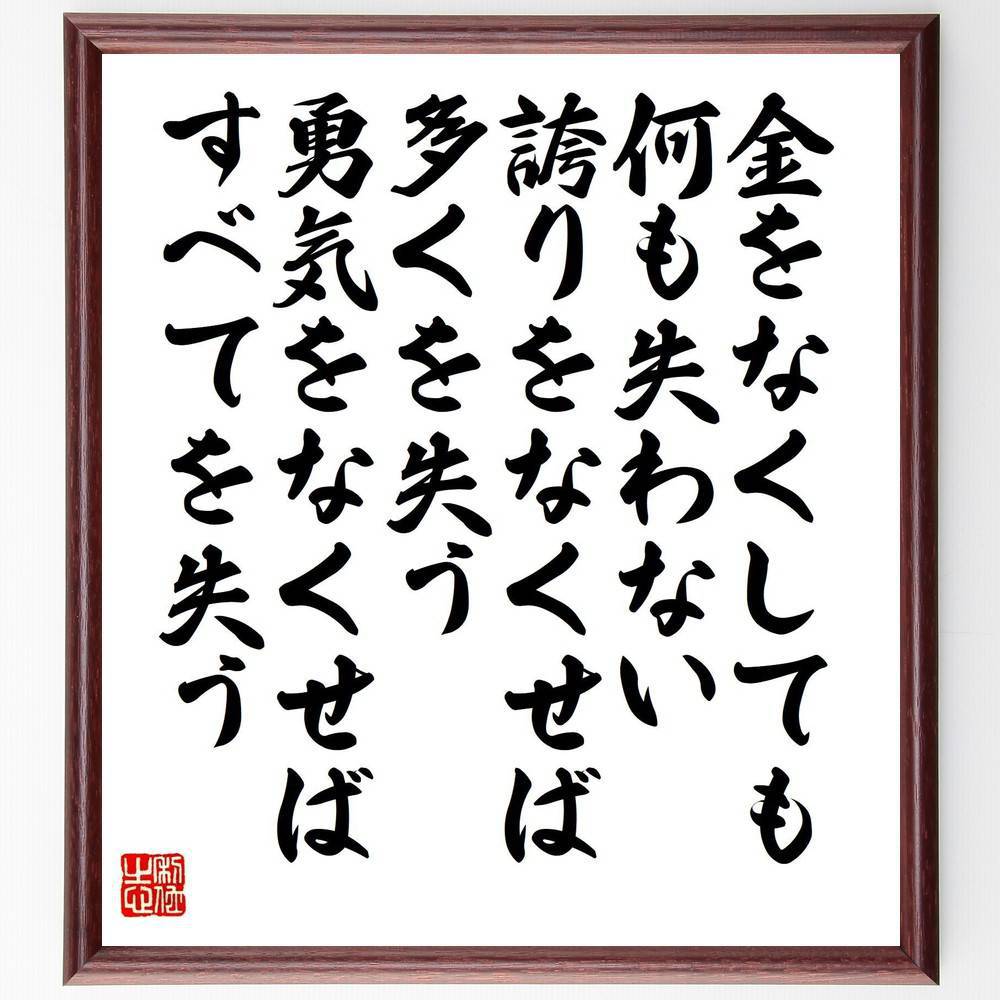 金をなくしても
何も失わない
誇りをなくせば
多くを失う
勇気をなくせば
すべてを失う